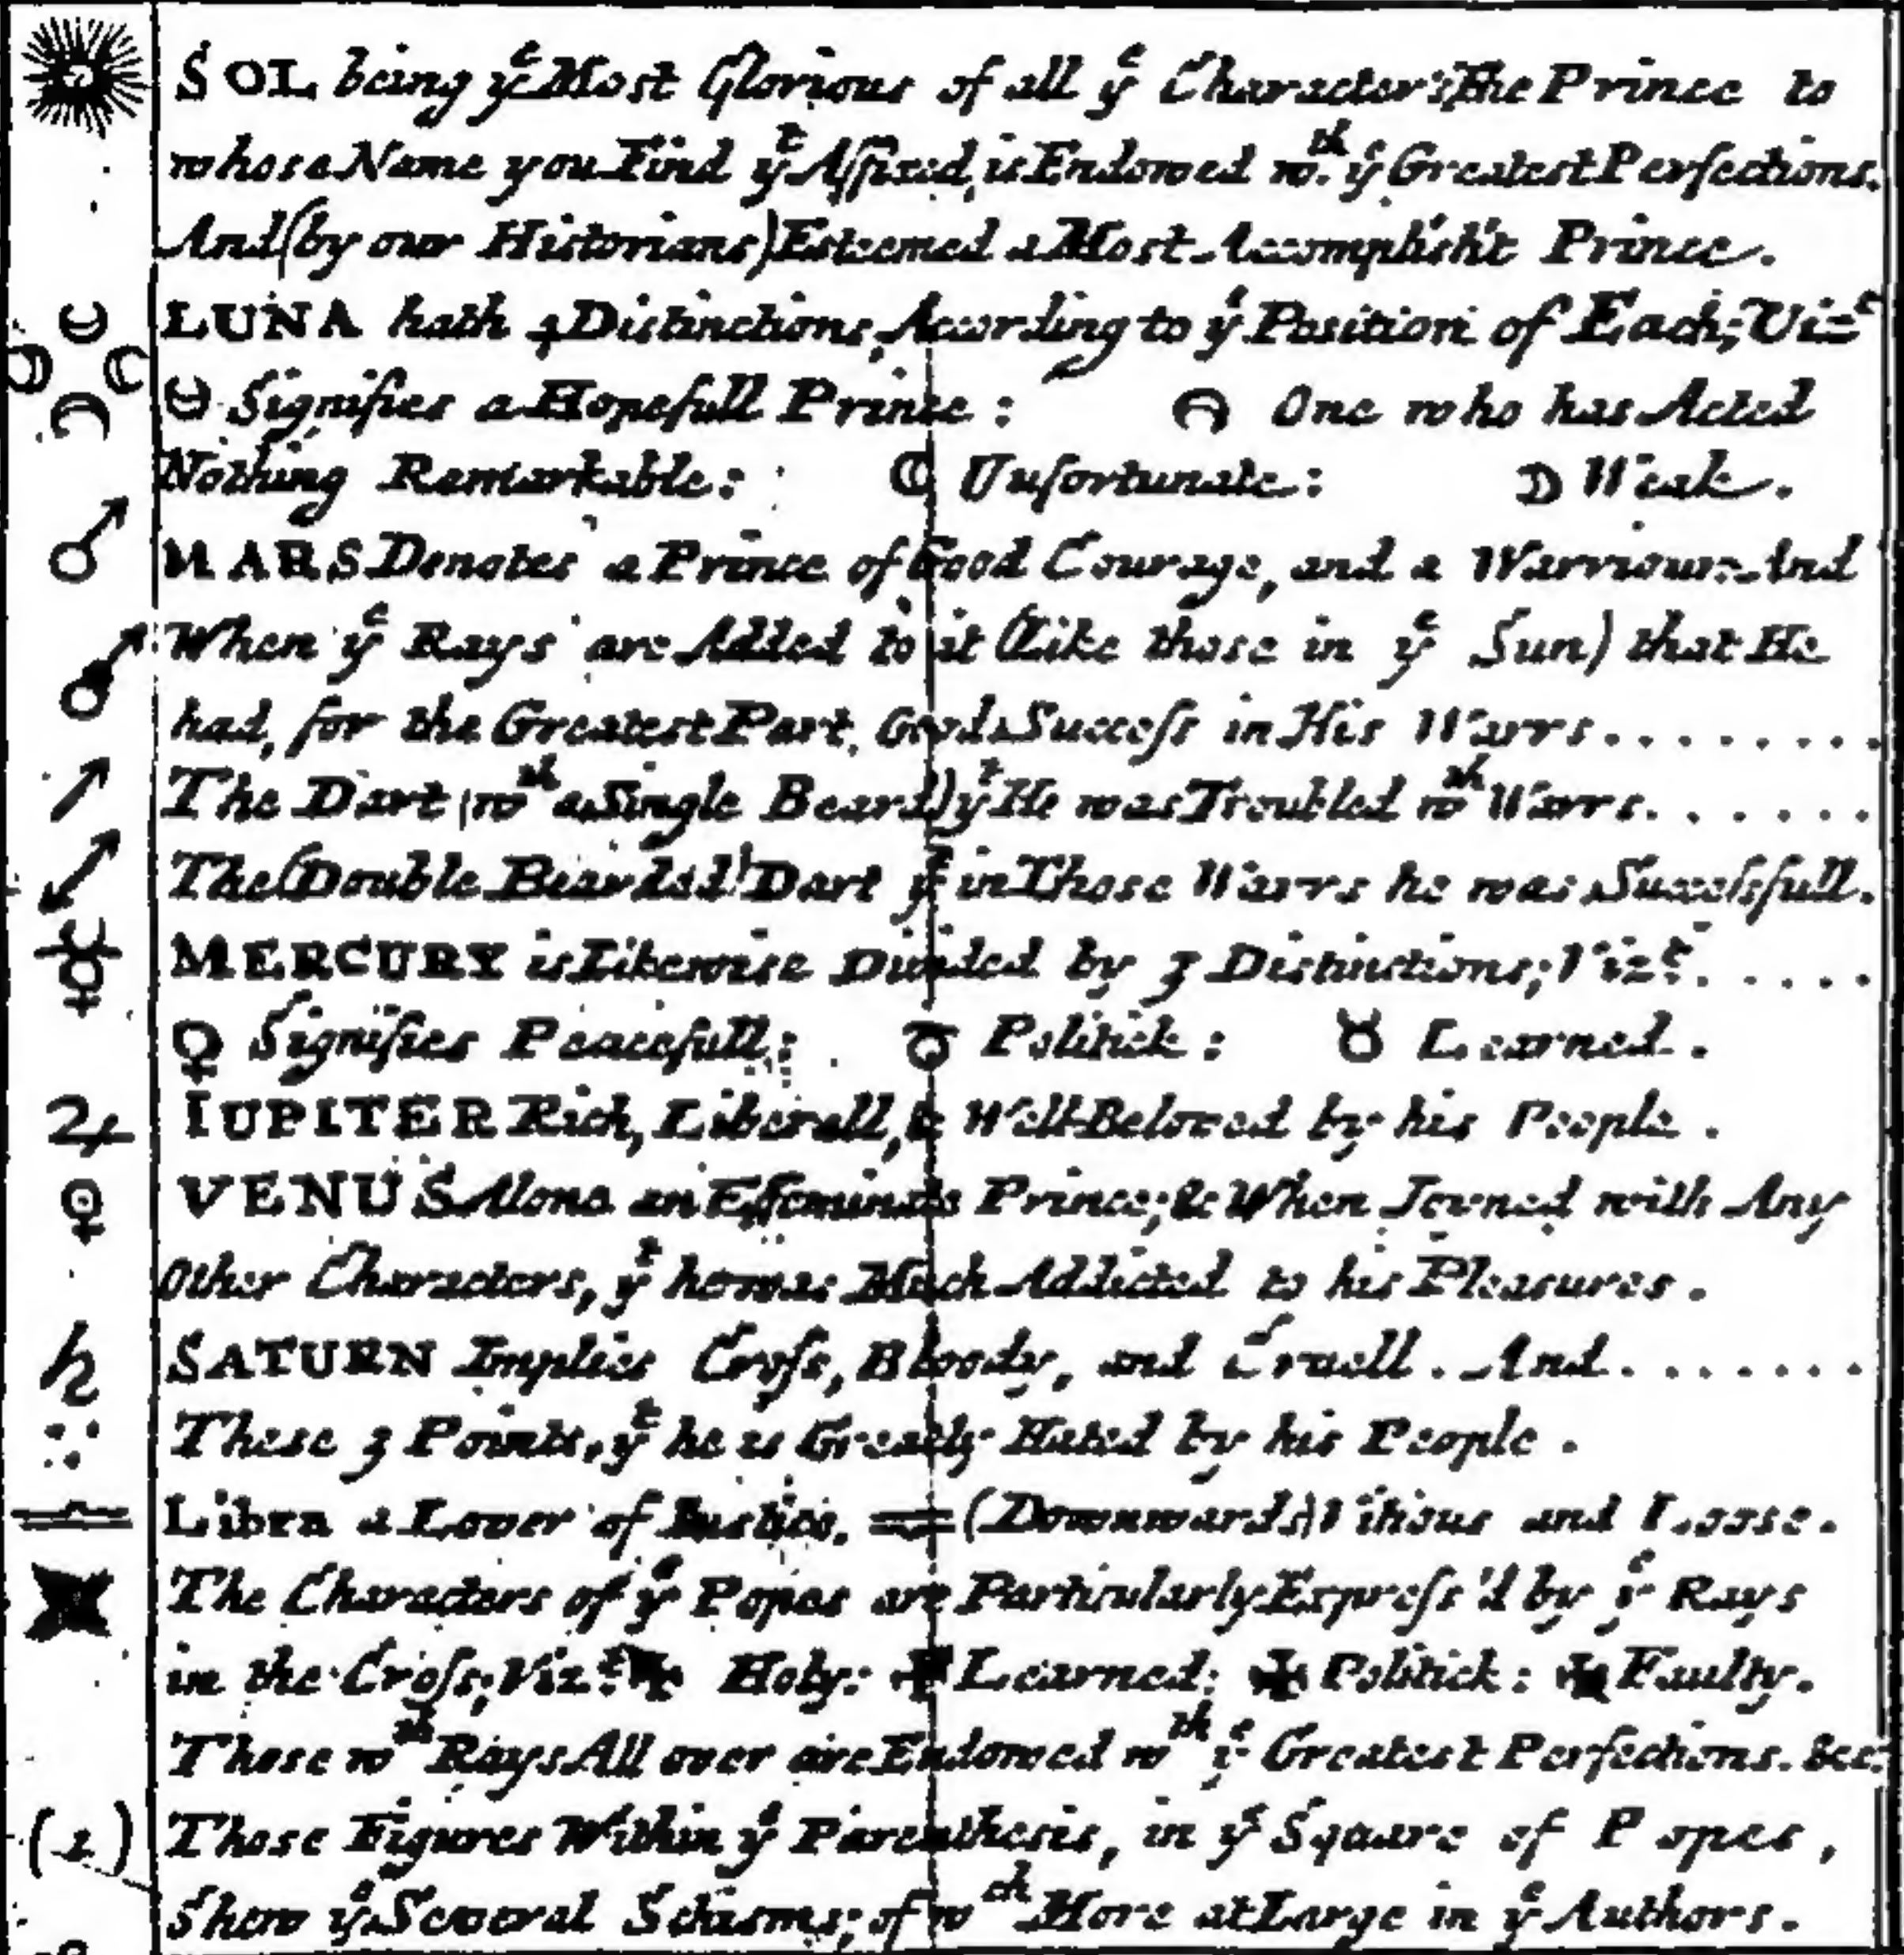 SOL being yᵉ Most Glorious of all yᵉ Characters, The Prince to
whose Name you Find yᵗ Affixed, is Endowed wᵗʰ. yᵉ Greatest Perfections.
And (by our Historians) Esteemed a Most Accomplish't Prince.
LUNA hath 4 Distinctions, According to yᵉ Position of Each; Vizᵗ
Signifies a Hopefull Prince: One who has Acted
Nothing Remarkable: ☾ Unfortunate: ☽ Weak.
♂ MARS Denotes a Prince of Good Courage, and a Warriour: And
When yᵉ Rays are Added to it (Like those in yᵉ Sun) that He
had, for the Greatest Part, Good Success in His Warrs.........
The Dart (wᵗʰ a Single Beard) yᵗ He was Troubled wᵗʰ Warrs......
The (Double Bearded) Dart yᵗ in Those Warrs he was Successfull.
☿ MERCURY is Likewise Divided by 3 Distinctions; Vizᵗ.....
♀ Signifies Peacefull: Politick: ♉ Learned.
♃ IUPITER Rich, Liberall, & Well-Beloved by his People.
♀ VENUS Alone an Effeminate Prince; & When Joyned with Any
Other Characters, yᵗ he was Much Addicted to his Pleasures.
♄ SATURN Implies Cross, Bloody, and Cruell. And.......
These 3 Points, yᵗ he is Greatly Hated by his People.
♎ Libra a Lover of Iustice. (Downwards) Vitious and Loose.
The Characters of yᵉ Popes are Particularly Express'd by yᵉ Rays
in the Cross; Vizᵗ ✠ Holy: ✠ Learned: ✠ Politick: ✠ Faulty.
Those wᵗʰ Rays All over are Endowed wᵗʰ yᵉ Greatest Perfections. &c:
Those Figures Within yᵉ Parenthesis, in yᵉ Square of Popes,
Shew yᵉ Several Schisms; of wᶜʰ More at Large in yᵉ Authors.